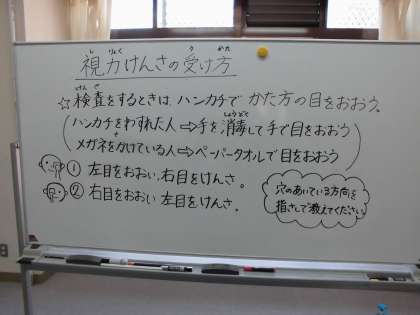 視力けんさの受け方
☆検査をするときは、ハンカチで かた方の目をおおう。
(ハンカチをわすれた人⇨手を消毒して手で目をおおう
メガネをかけている人⇨ペーパータオルで目をおおう)
① 左目をおおい、右目をけんさ。
② 右目をおおい 左目をけんさ。
穴のあいている方向を
指さして教えてください